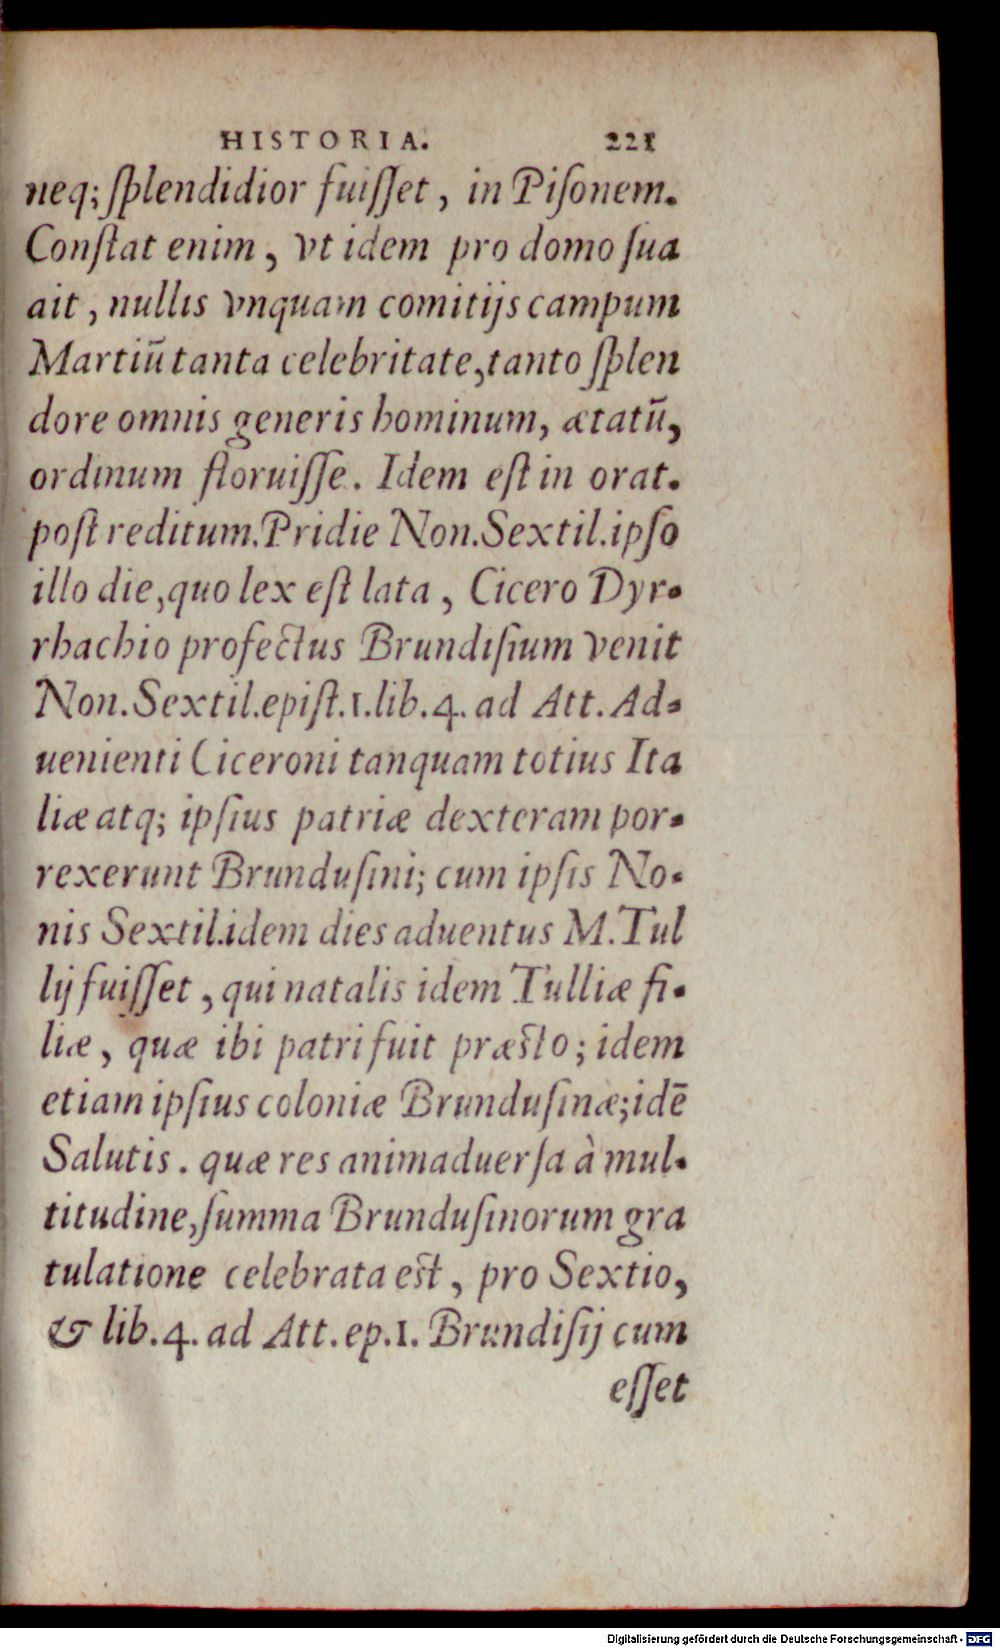 HISTORIA. 221
neq; ſplendidior fuiſſet, in Piſonem.
Conſtat enim, vt idem pro domo ſua
ait, nullis vnquam comitijs campum
Martiū tanta celebritate, tanto ſplen
dore omnis generis hominum, ætatū,
ordinum floruiſſe. Idem eſt in orat.
poſt reditum. Pridie Non. Sextil. ipſo
illo die, quo lex eſt lata, Cicero Dyr-
rhachio profectus Brundiſium venit
Non. Sextil. epiſt. 1. lib. 4. ad Att. Ad-
uenienti Ciceroni tanquam totius Ita
liæ atq; ipſius patriæ dexteram por-
rexerunt Brunduſini; cum ipſis No-
nis Sextil. idem dies aduentus M. Tul
lij fuiſſet, qui natalis idem Tulliæ fi-
liæ, quæ ibi patri fuit præsto; idem
etiam ipſius coloniæ Brunduſinæ; idē
Salutis. quæ res animaduerſa à mul-
titudine, ſumma Brunduſinorum gra
tulatione celebrata est, pro Sextio,
& lib. 4. ad Att. ep. 1. Brundiſij cum
eſſet
Digitalisierung gefördert durch die Deutsche Forschungsgemeinschaft - DFG